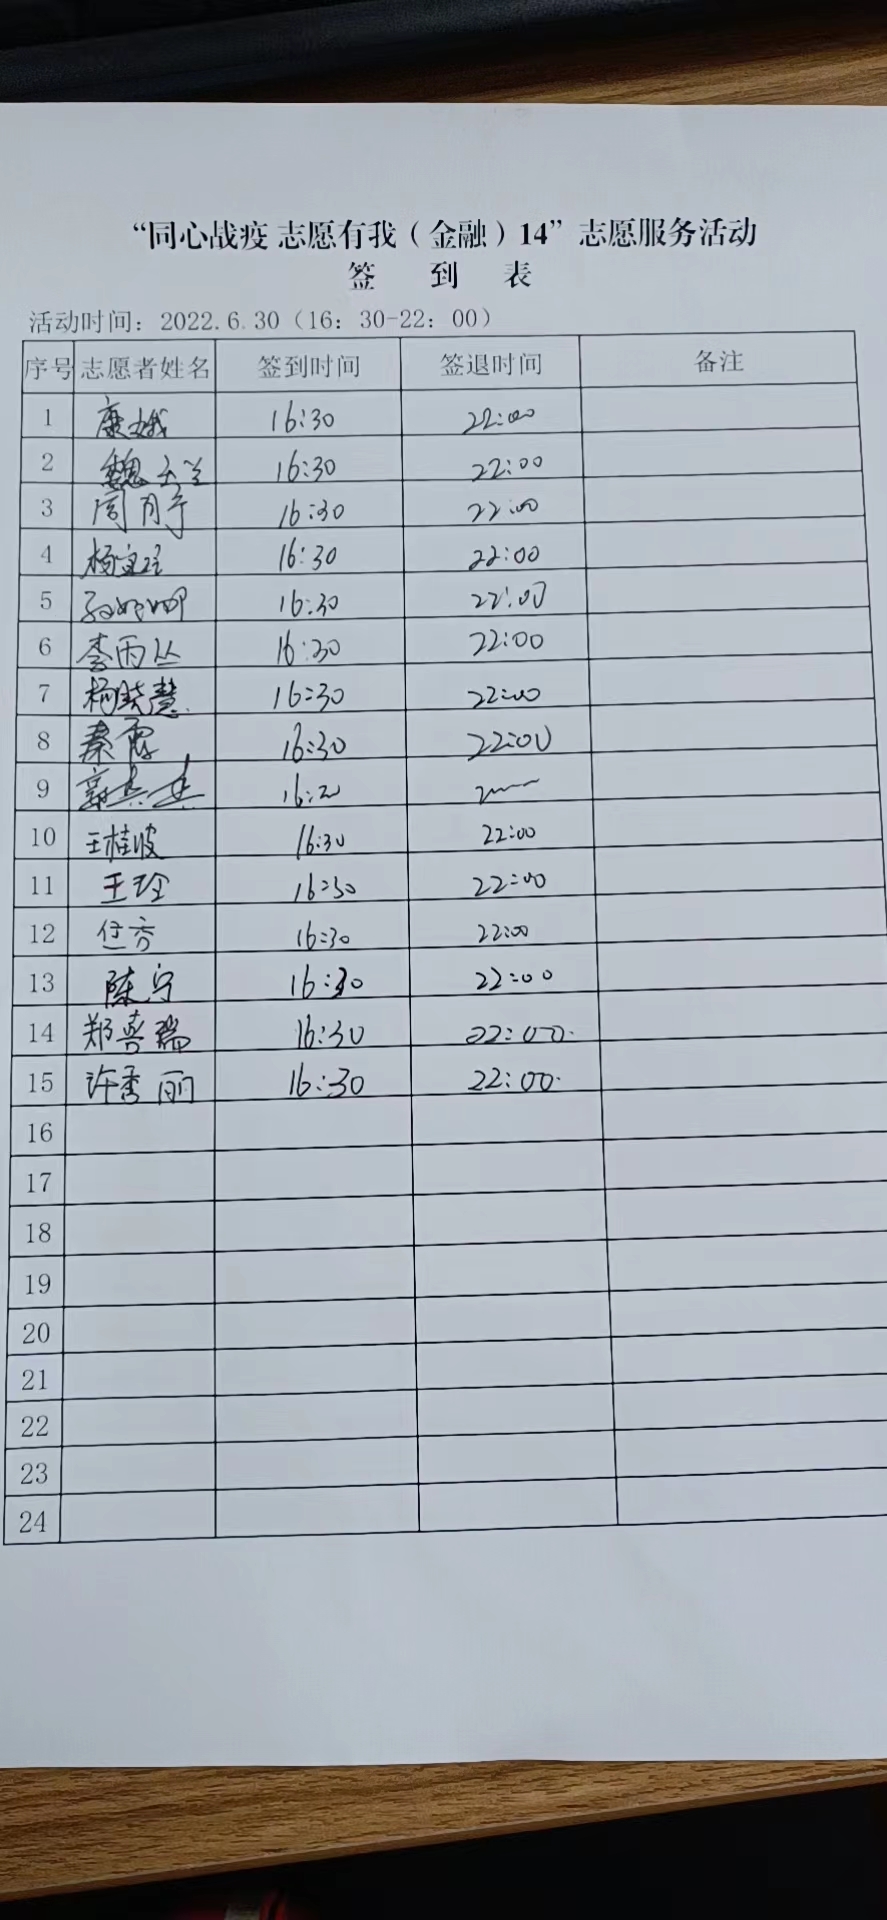 “同心战疫 志愿有我（金融）14”志愿服务活动
签 到 表
活动时间：2022.6.30（16：30-22：00）
序号 志愿者姓名 签到时间 签退时间 备注
1 康娥 16:30 22:00
2 魏玉兰 16:30 22:00
3 周月宁 16:30 22:00
4 杨 16:30 22:00
5 孙娜 16:30 22:00
6 李雨丛 16:30 22:00
7 杨晓慧 16:30 22:00
8 秦霞 16:30 22:00
9 16:30
10 王桂波 16:30 22:00
11 王玲 16:30 22:00
12 任芳 16:30 22:00
13 陈宁 16:30 22:00
14 郑喜瑞 16:30 22:00
15 许秀丽 16:30 22:00
16
17
18
19
20
21
22
23
24